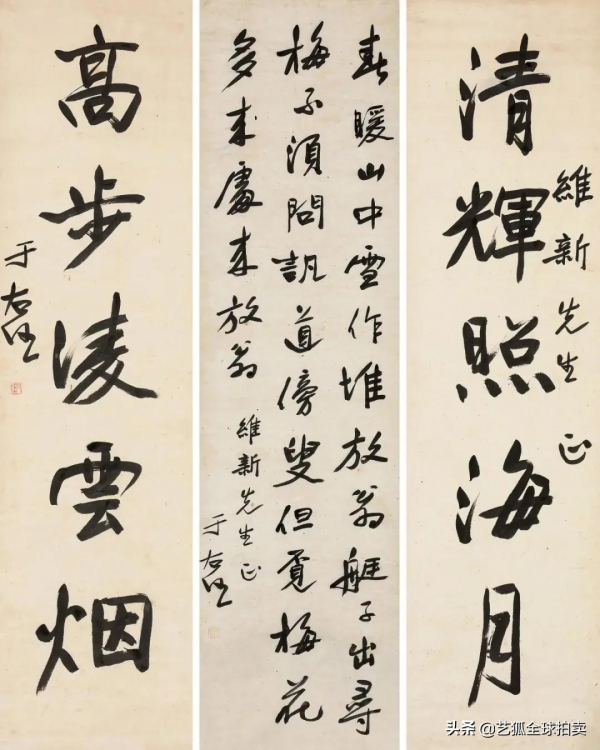 清輝照海月
維新先生正
春暖山中雪作堆放翁艇子出尋
梅不須問訊道傍叟但覓梅花
多来處来放翁
維新先生正
于右任
高步凌雲烟
于右任
头条 @艺狐全球拍卖